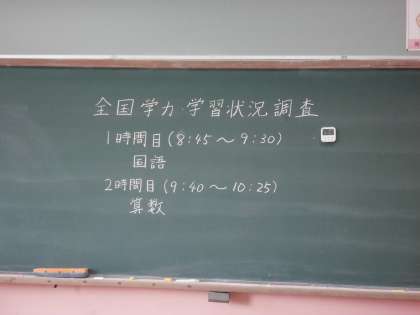 全国学力・学習状況調査
1時間目(8:45〜9:30)
国語
2時間目(9:40〜10:25)
算数